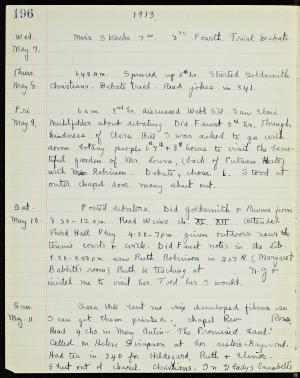 196 1913
Wed. Miss Shacke 7:00. 8:00 Fourth Trial Debate.
May 7.
Thurs. 6:48 a.m. Spruced up 5th hr. Started Goldsmith
May 8. Christians. Debate trial. Read jokes in 341.
Fri. 6 a.m. 3rd hr. discussed Webb Hill Saw Elsie
May 9. about debating. Did Faust 5th hr. Through
kindness of Clara Hill I was asked to go with
some botany people 7th + 8th hours to visit the beau-
tiful garden of Mr. (back of Putnam Hall)
with Robinson. Debate, chose L. Stood at
outer chapel door many shut out.
Sat. Posted debaters. Did Goldsmith + Burns from
May 10. 8:30 - 12 a.m. Read Wins ch. XI XII. Attended
Third Hall Play 4:00-7 p.m. given outdoors near the
tennis courts + circle. Did Faust notes in the Lib.
9:30-9:50 p.m. saw Ruth Robinson in 217 R. (Margaret
Babbitt's room) Ruth is teaching at N.J. +
invited me to visit her. Told her I would.
Sun. Clara Hill lent me ring developed films so
May 11. I can get them printed. chapel Rev. Ross
Read 4 chs in Mary Antin - "The Promised Land."
Called on Helen Stimpson at her sisters - Raymond.
Had tea in 340 for Hildegard, Ruth + Elinor.
5 shut out of chapel. Christians. In Gladys Campbell's